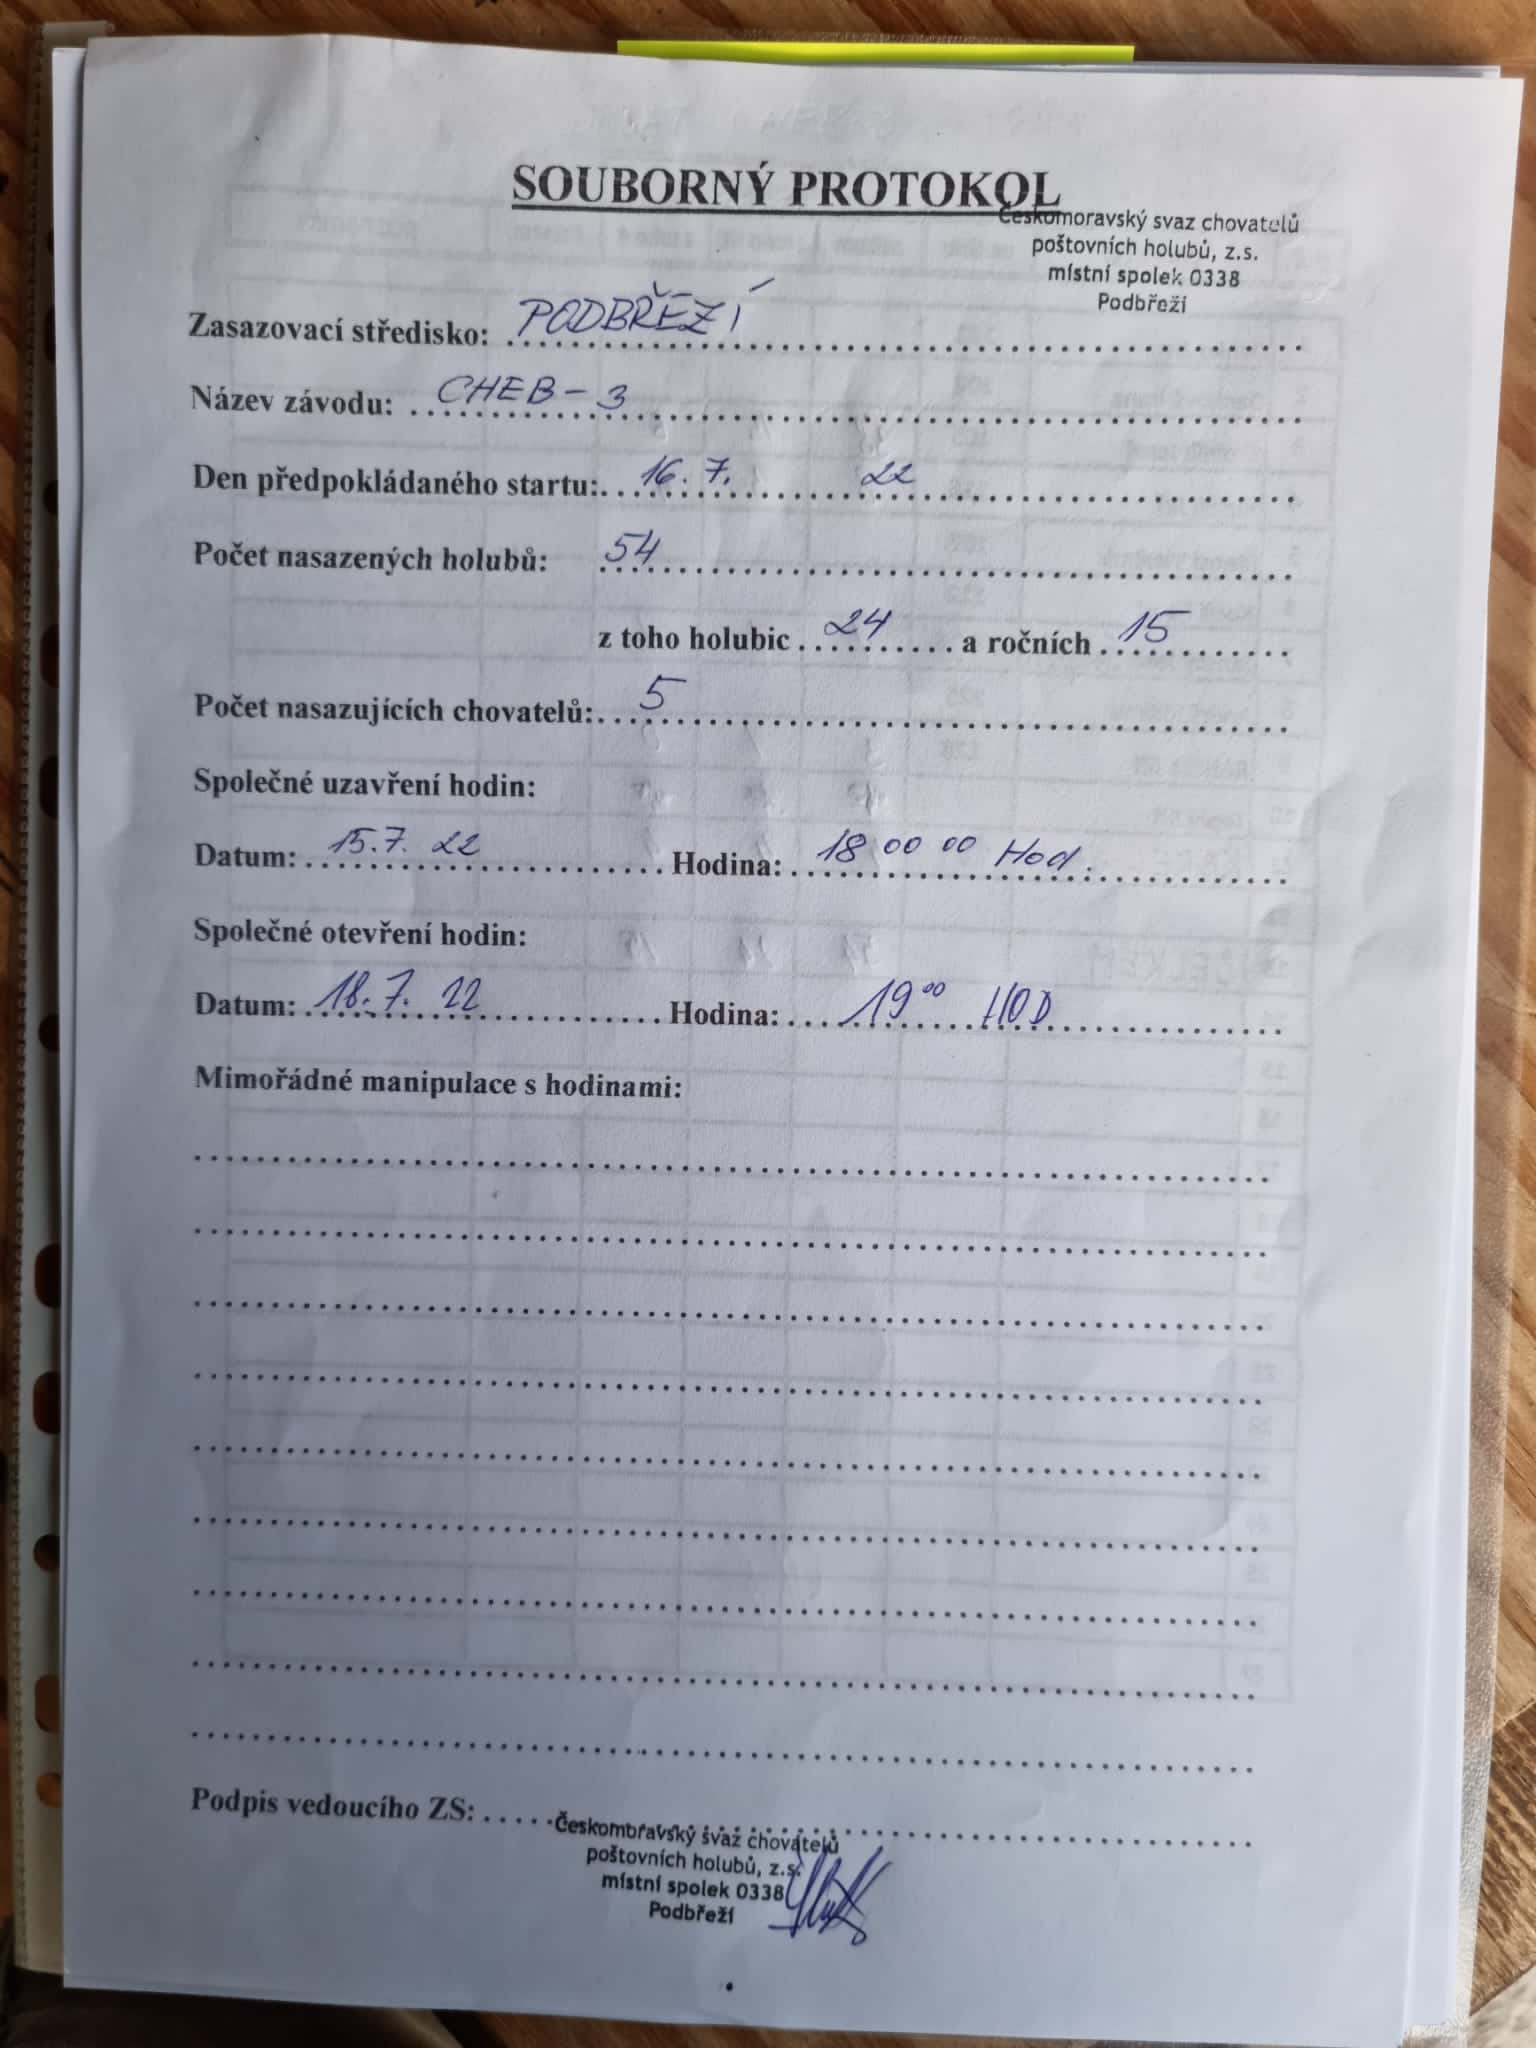 SOUBORNÝ PROTOKOL
Českomoravský svaz chovatelů
poštovních holubů, z.s.
místní spolek 0338
Podbřeží
Zasazovací středisko: PODBŘEZÍ
Název závodu: CHEB - 3
Den předpokládaného startu: 16. 7. 22
Počet nasazených holubů: 54
z toho holubic 24 a ročních 15
Počet nasazujících chovatelů: 5
Společné uzavření hodin:
Datum: 15. 7. 22 Hodina: 18 00 00 Hod.
Společné otevření hodin:
Datum: 18. 7. 22 Hodina: 19 00 HOD
Mimořádné manipulace s hodinami:
Podpis vedoucího ZS:
Českomoravský svaz chovatelů
poštovních holubů, z.s.
místní spolek 0338
Podbřeží